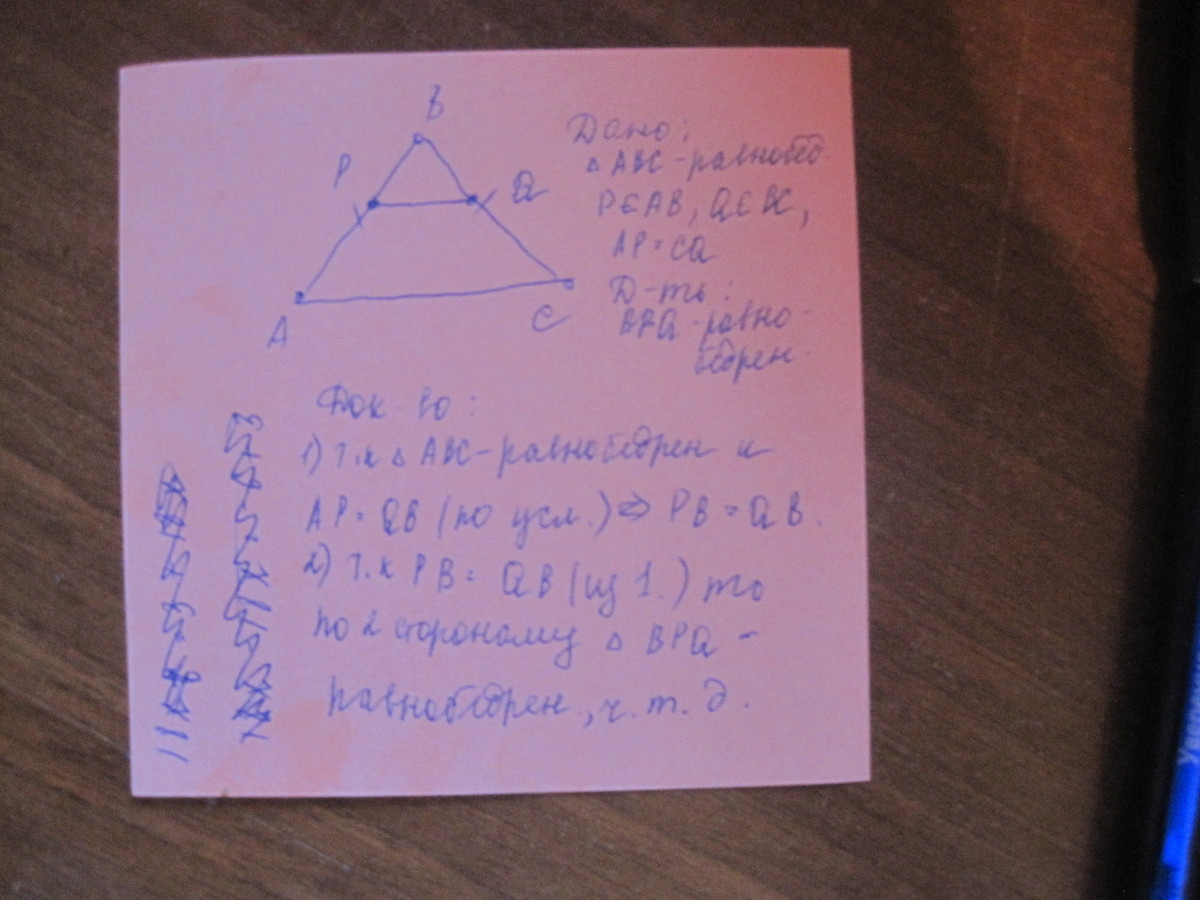 B
P
Q
A
C
Дано:
△ ABC - равнобед.
P∈AB, Q∈BC,
AP = CQ
Д-ть:
BPQ - равно-
бедрен.
Док-во:
1) т.к △ ABC - равнобедрен и
AP = QB (по усл.) => PB = QB.
2) т.к PB = QB (из 1.) то
по 2 сторонаму △ BPQ -
равнобедрен, ч.т.д.